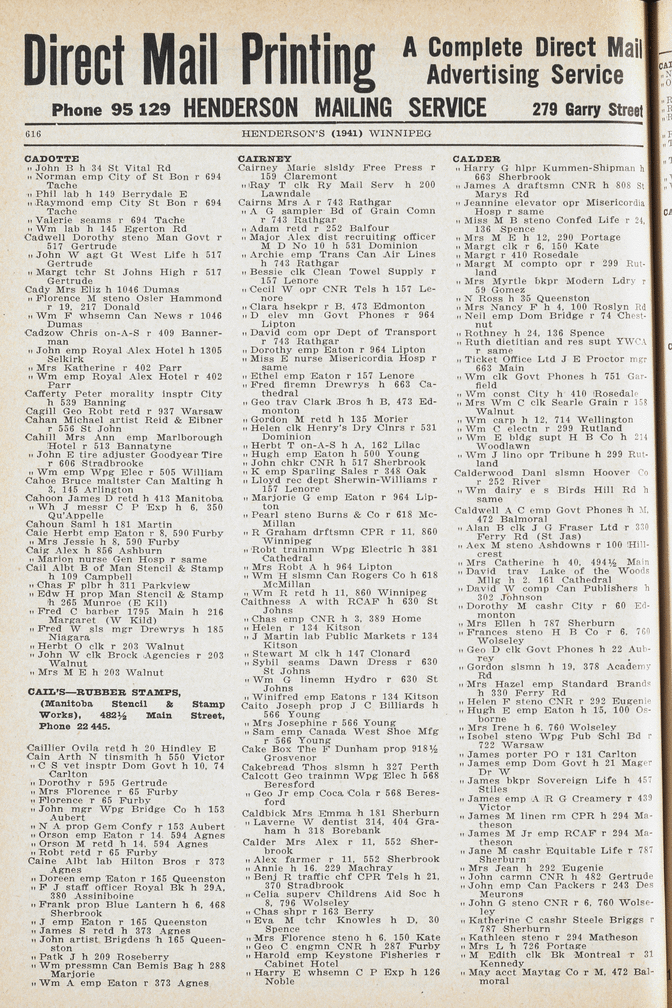 Direct Mail Printing
A Complete Direct Mail
Advertising Service
Phone 95 129 HENDERSON MAILING SERVICE 279 Garry Street
616
HENDERSON'S (1941) WINNIPEG
CADOTTE
„ John B h 34 St Vital Rd
„ Norman emp City of St Bon r 694
Tache
„ Phil lab h 149 Berrydale E
„ Raymond emp City St Bon r 694
Tache
„ Valerie seams r 694 Tache
„ Wm lab h 145 Egerton Rd
Cadwell Dorothy steno Man Govt r
517 Gertrude
„ John W agt Gt West Life h 517
Gertrude
„ Margt tchr St Johns High r 517
Gertrude
Cady Mrs Eliz h 1046 Dumas
„ Florence M steno Osler Hammond
r 19, 217 Donald
„ Wm F whsemn Can News r 1046
Dumas
Cadzow Chris on-A-S r 409 Banner-
man
„ John emp Royal Alex Hotel h 1305
Selkirk
„ Mrs Katherine r 402 Parr
„ Wm emp Royal Alex Hotel r 402
Parr
Cafferty Peter morality insptr City
h 539 Banning
Cagill Geo Robt retd r 937 Warsaw
Cahan Michael artist Reid & Eibner
r 556 St John
Cahill Mrs Ann emp Marlborough
Hotel r 513 Bannatyne
„ John E tire adjuster Goodyear Tire
r 606 Stradbrooke
„ Wm emp Wpg Elec r 505 William
Cahoe Bruce maltster Can Malting h
3, 145 Arlington
Cahoon James D retd h 413 Manitoba
„ Wh J messr C P Exp h 6, 350
Qu'Appelle
Cahoun Saml h 181 Martin
Caie Herbt emp Eaton r 8, 590 Furby
„ Mrs Jessie h 8, 590 Furby
Caig Alex h 856 Ashburn
„ Marion nurse Gen Hosp r same
Cail Albt B of Man Stencil & Stamp
h 109 Campbell
„ Chas F plbr h 311 Parkview
„ Edw H prop Man Stencil & Stamp
h 265 Munroe (E Kil)
„ Fred C barber 1795 Main h 216
Margaret (W Kild)
„ Fred W sls mgr Drewrys h 185
Niagara
„ Herbt O clk r 203 Walnut
„ John W clk Brock Agencies r 203
Walnut
„ Mrs M E h 203 Walnut
CAIL'S—RUBBER STAMPS,
(Manitoba Stencil & Stamp
Works), 482½ Main Street,
Phone 22 445.
Caillier Ovila retd h 20 Hindley E
Cain Arth N tinsmith h 550 Victor
„ C S vet inspr Dom Govt h 10, 74
Carlton
„ Dorothy r 595 Gertrude
„ Mrs Florence r 65 Furby
„ Florence r 65 Furby
„ John mgr Wpg Bridge Co h 153
Aubert
„ N A prop Gem Confy r 153 Aubert
„ Orson emp Eaton r 14, 594 Agnes
„ Orson M retd h 14, 594 Agnes
„ Robt retd r 65 Furby
Caine Albt lab Hilton Bros r 373
Agnes
„ Doreen emp Eaton r 165 Queenston
„ F J staff officer Royal Bk h 29A,
380 Assiniboine
„ Frank prop Blue Lantern h 6, 468
Sherbrook
„ J emp Eaton r 165 Queenston
„ James S retd h 373 Agnes
„ John artist Brigdens h 165 Queen-
ston
„ Patk J h 209 Roseberry
„ Wm pressmn Can Bemis Bag h 288
Marjorie
„ Wm A emp Eaton r 373 Agnes
CAIRNEY
Cairney Marie slsldy Free Press r
159 Claremont
„ Ray T clk Ry Mail Serv h 200
Lawndale
Cairns Mrs A r 743 Rathgar
„ A G sampler Bd of Grain Comn
r 743 Rathgar
„ Adam retd r 252 Balfour
„ Major Alex dist recruiting officer
M D No 10 h 531 Dominion
„ Archie emp Trans Can Air Lines
h 743 Rathgar
„ Bessie clk Clean Towel Supply r
157 Lenore
„ Cecil W opr CNR Tels h 157 Le-
nore
„ Clara hsekpr r B, 473 Edmonton
„ D elev mn Govt Phones r 964
Lipton
„ David com opr Dept of Transport
r 743 Rathgar
„ Dorothy emp Eaton r 964 Lipton
„ Miss E nurse Misericordia Hosp r
same
„ Ethel emp Eaton r 157 Lenore
„ Fred firemn Drewrys h 663 Ca-
thedral
„ Geo trav Clark Bros h B, 473 Ed-
monton
„ Gordon M retd h 135 Morier
„ Helen clk Henry's Dry Clnrs r 531
Dominion
„ Herbt T on-A-S h A, 162 Lilac
„ Hugh emp Eaton h 500 Young
„ John chkr CNR h 517 Sherbrook
„ K emp Sparling Sales r 348 Oak
„ Lloyd rec dept Sherwin-Williams r
157 Lenore
„ Marjorie G emp Eaton r 964 Lip-
ton
„ Pearl steno Burns & Co r 618 Mc-
Millan
„ R Graham drftsmn CPR r 11, 860
Winnipeg
„ Robt trainmn Wpg Electric h 381
Cathedral
„ Mrs Robt A h 964 Lipton
„ Wm H slsmn Can Rogers Co h 618
McMillan
„ Wm R retd h 11, 860 Winnipeg
Caithness A with RCAF h 630 St
Johns
„ Chas emp CNR h 3, 389 Home
„ Helen r 134 Kitson
„ J Martin lab Public Markets r 134
Kitson
„ Stewart M clk h 147 Clonard
„ Sybil seams Dawn Dress r 630
St Johns
„ Wm G linemn Hydro r 630 St
Johns
„ Winifred emp Eatons r 134 Kitson
Caito Joseph prop J C Billiards h
566 Young
„ Mrs Josephine r 566 Young
„ Sam emp Canada West Shoe Mfg
r 566 Young
Cake Box The F Dunham prop 918½
Grosvenor
Cakebread Thos slsmn h 327 Perth
Calcott Geo trainmn Wpg Elec h 568
Beresford
„ Geo Jr emp Coca Cola r 568 Beres-
ford
Caldbick Mrs Emma h 181 Sherburn
„ Laverne W dentist 314, 404 Gra-
ham h 318 Borebank
Calder Mrs Alex r 11, 552 Sher-
brook
„ Alex farmer r 11, 552 Sherbrook
„ Annie h 16, 229 Machray
„ Benj R traffic chf CPR Tels h 21,
370 Stradbrook
„ Celia superv Childrens Aid Soc h
8, 796 Wolseley
„ Chas shpr r 163 Berry
„ Eva M tchr Knowles h D, 30
Spence
„ Mrs Florence steno h 6, 150 Kate
„ Geo C engmn CNR h 287 Furby
„ Harold emp Keystone Fisheries r
Cabinet Hotel
„ Harry E whsemn C P Exp h 126
Noble
CALDER
„ Harry G hlpr Kummen-Shipman h
663 Sherbrook
„ James A draftsmn CNR h 808 St
Marys Rd
„ Jeannine elevator opr Misericordia
Hosp r same
„ Miss M B steno Confed Life r 24,
136 Spence
„ Mrs M E h 12, 290 Portage
„ Margt clk r 6, 150 Kate
„ Margt r 410 Rosedale
„ Margt M compto opr r 299 Rut-
land
„ Mrs Myrtle bkpr Modern Ldry r
59 Gomez
„ N Ross h 35 Queenston
„ Mrs Nancy F h 4, 100 Roslyn Rd
„ Neil emp Dom Bridge r 74 Chest-
nut
„ Rothney h 24, 136 Spence
„ Ruth dietitian and res supt YWCA
r same
„ Ticket Office Ltd J E Proctor mgr
663 Main
„ Wm clk Govt Phones h 751 Gar-
field
„ Wm const City h 410 Rosedale
„ Mrs Wm C clk Searle Grain r 158
Walnut
„ Wm carp h 12, 714 Wellington
„ Wm C electn r 299 Rutland
„ Wm E bldg supt H B Co h 214
Woodlawn
„ Wm J lino opr Tribune h 299 Rut-
land
Calderwood Danl slsmn Hoover Co
r 252 River
„ Wm dairy e s Birds Hill Rd h
same
Caldwell A C emp Govt Phones h M,
472 Balmoral
„ Alan B clk J G Fraser Ltd r 330
Ferry Rd (St Jas)
„ Aex M steno Ashdowns r 100 Hill-
crest
„ Mrs Catherine h 40, 494½ Main
„ David trav Lake of the Woods
Mllg h 2, 161 Cathedral
„ David W comp Can Publishers h
302 Johnson
„ Dorothy M cashr City r 60 Ed-
monton
„ Mrs Ellen h 787 Sherburn
„ Frances steno H B Co r 6, 760
Wolseley
„ Geo D clk Govt Phones h 22 Aub-
rey
„ Gordon slsmn h 19, 378 Academy
Rd
„ Mrs Hazel emp Standard Brands
h 330 Ferry Rd
„ Helen F steno CNR r 292 Eugenie
„ Hugh E emp Eaton h 15, 100 Os-
borne
„ Mrs Irene h 6, 760 Wolseley
„ Isobel steno Wpg Pub Schl Bd r
722 Warsaw
„ James porter PO r 131 Carlton
„ James emp Dom Govt h 21 Mager
Dr W
„ James bkpr Sovereign Life h 457
Stiles
„ James emp A R G Creamery r 439
Victor
„ James M linen rm CPR h 294 Ma-
theson
„ James M Jr emp RCAF r 294 Ma-
theson
„ Jane M cashr Equitable Life r 787
Sherburn
„ Mrs Jean h 292 Eugenie
„ John carmn CNR h 482 Gertrude
„ John emp Can Packers r 243 Des
Meurons
„ John G steno CNR r 6, 760 Wolse-
ley
„ Katherine C cashr Steele Briggs r
787 Sherburn
„ Kathleen steno r 294 Matheson
„ Mrs L h 726 Portage
„ M Edith clk Bk Montreal r 31
Kennedy
„ May acct Maytag Co r M, 472 Bal-
moral